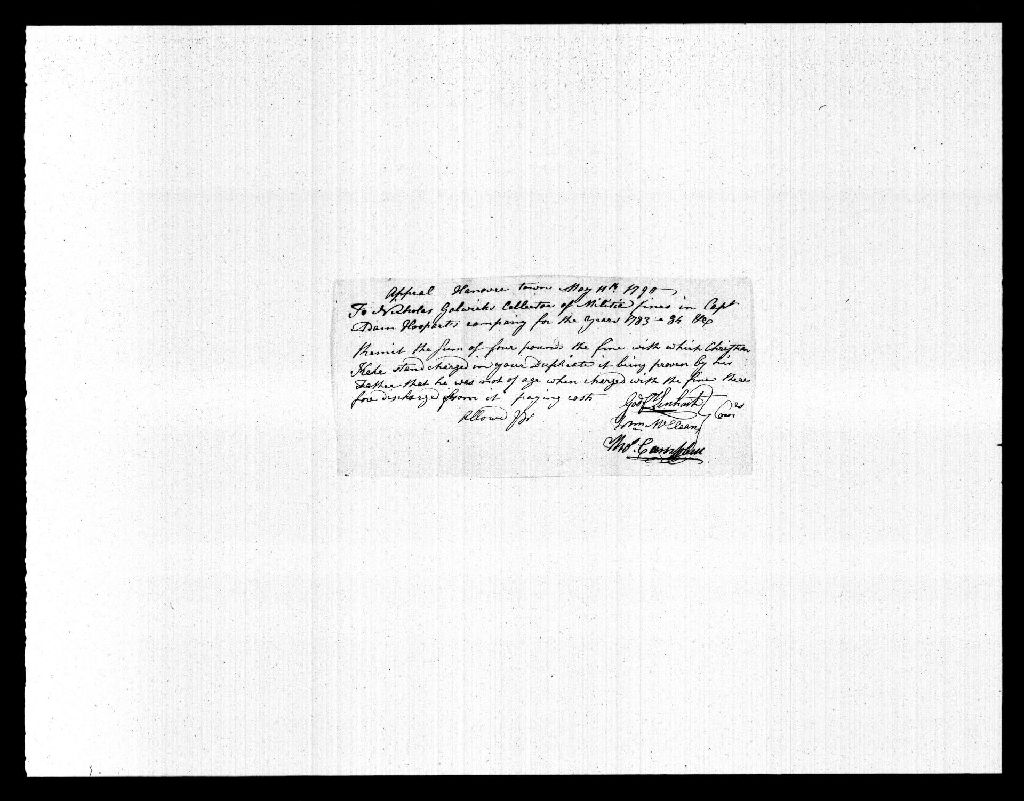 Appeal Hanover town May 11th 1790
To Nicholas Gelwicks Collector of Militia fines in Capt
Adam Hoopart's company for the years 1783 & 84 &c
Remit the sum of four pounds the fine with which Christian
Heke stand charged in your Duplicate it being proven by his
Father that he was not of age when charged with the fine there
fore discharged from it paying costs
Allowed
Godf Lenhart
Wm McClean
Thos. Campbell